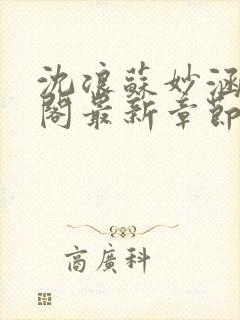 沈浪蘇妙涵
閣最新章節
商廣科